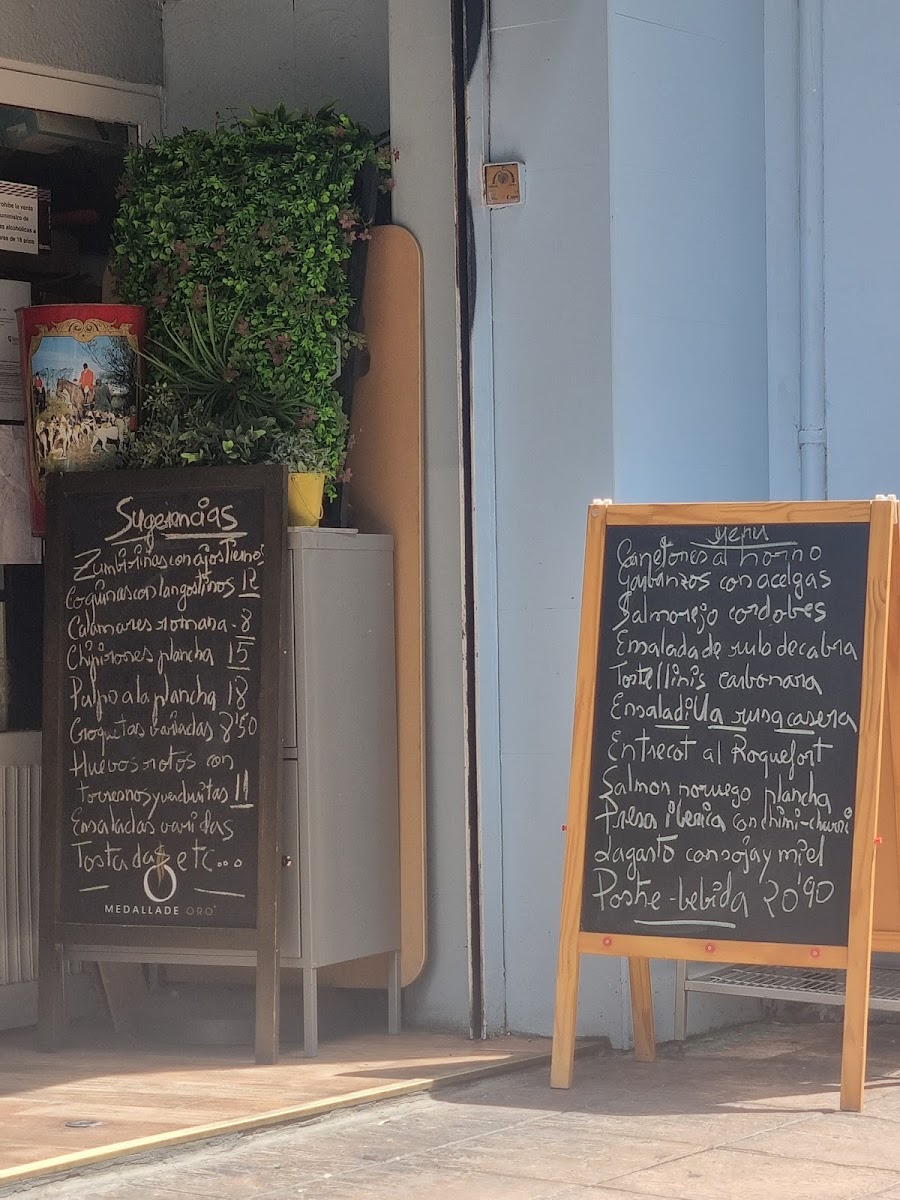 rohibe la venta
uministro de
as alcohólicas a
res de 18 años
Sugerencias
Zumbiriñas con ajos tiernos
Coquinas con langostinos 12
Calamares romana - 8
Chipirones plancha 15
Pulpo a la plancha 18
Croquetas variadas 8'50
Huevos rotos con
torresnos y verduritas 11
Ensaladas varidas
Tostadas etc...
MEDALLA DE ORO
menu
Canelones al horno
Garbanzos con acelgas
Salmorejo cordobes
Ensalada de rulo de cabra
Tortellinis carbonara
Ensaladilla rusa casera
Entrecot al Roquefort
Salmon noruego plancha
Presa iberica con chimi-churri
Lagarto con soja y miel
Postre-bebida 20'90